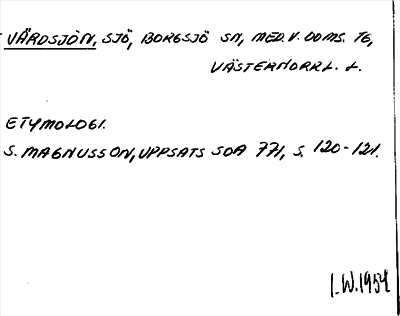 VÄRDSJÖN, SJÖ, BORGSJÖ SN, MED. V. DOMS. TG,
VÄSTERNORRL. L.
ETYMOLOGI.
S. MAGNUSSON, UPPSATS SOA 771, S. 120-121.
I.W. 1954